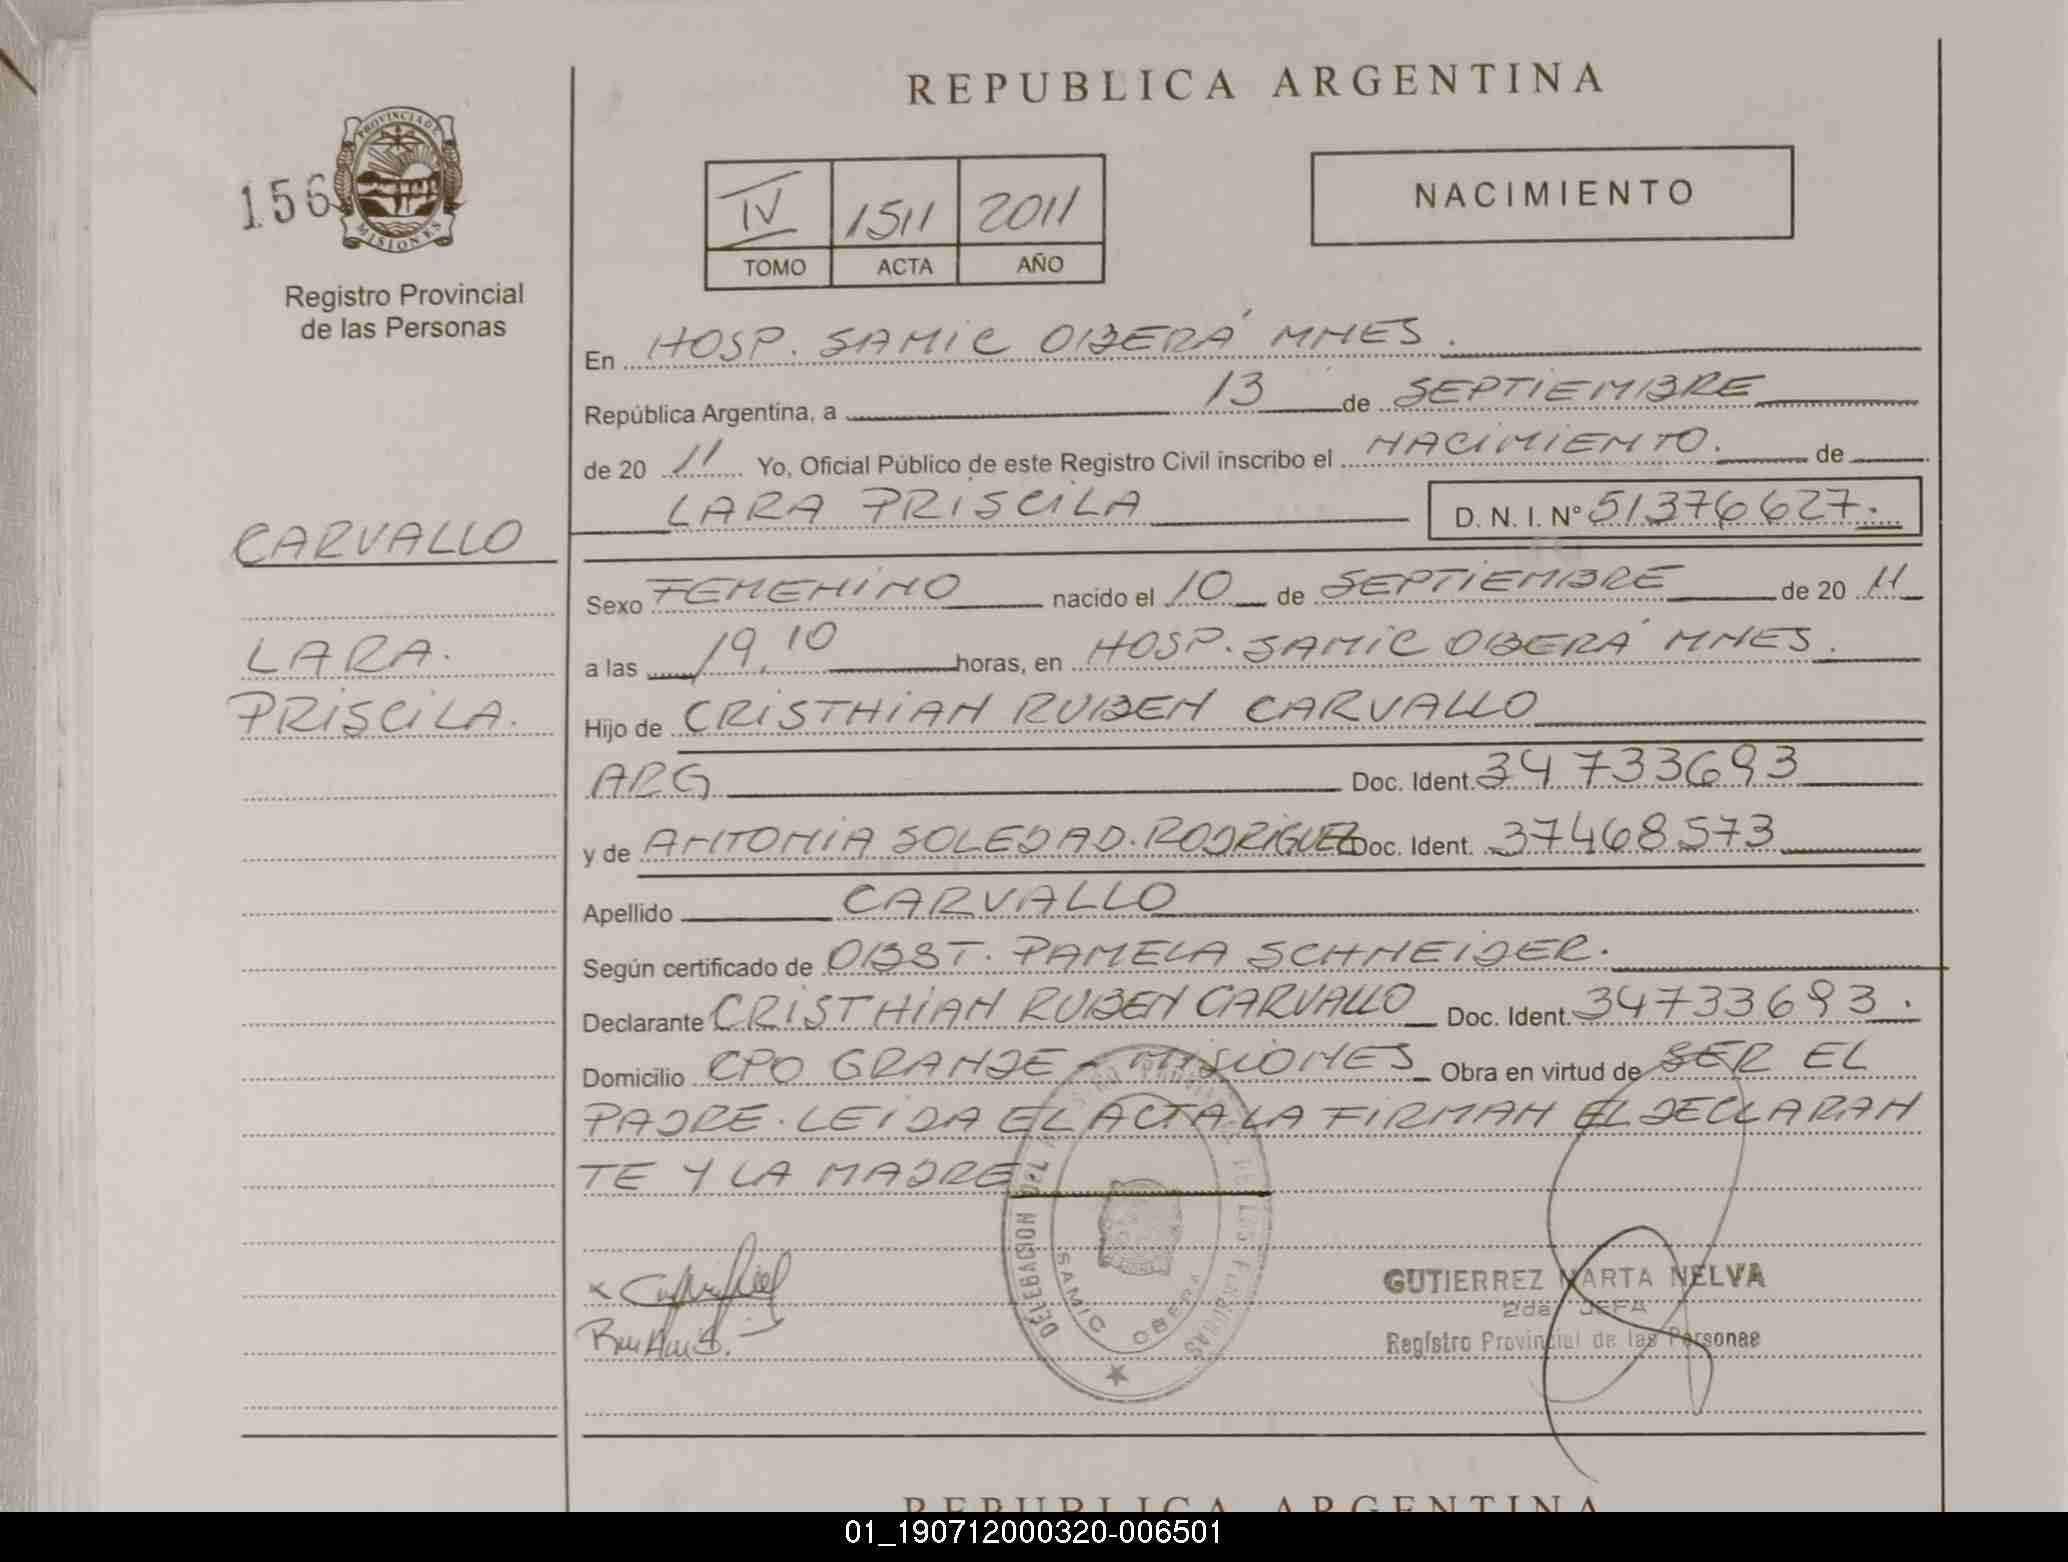 REPUBLICA ARGENTINA
PROVINCIA DE
MISIONES
156
Registro Provincial
de las Personas
IV 1511 2011
TOMO ACTA AÑO
NACIMIENTO
En HOSP. SAMIC OBERÁ MNES.
República Argentina, a 13 de SEPTIEMBRE
de 20 11 Yo, Oficial Público de este Registro Civil inscribo el NACIMIENTO. de
LARA PRISCILA D. N. I. Nº 51376627.
CARVALLO
LARA.
PRISCILA.
Sexo FEMENINO nacido el 10 de SEPTIEMBRE de 20 11
a las 19,10 horas, en HOSP. SAMIC OBERÁ MNES.
Hijo de CRISTHIAN RUBEN CARVALLO
ARG Doc. Ident. 34733693
y de ANTONIA SOLEDAD. RODRIGUEZ Doc. Ident. 37468573
Apellido CARVALLO
Según certificado de OBST. PAMELA SCHNEIDER.
Declarante CRISTHIAN RUBEN CARVALLO Doc. Ident. 34733693.
Domicilio CPO GRANDE - MISIONES Obra en virtud de SER EL
PADRE. LEIDA EL ACTA LA FIRMAN EL DECLARAN
TE Y LA MADRE
DELEGACION DEL REGISTRO PROVINCIAL DE LAS PERSONAS
SAMIC OBERA
GUTIERREZ MARTA NELVA
2da JEFA
Registro Provincial de las Personas
REPUBLICA ARGENTINA
01_190712000320-006501